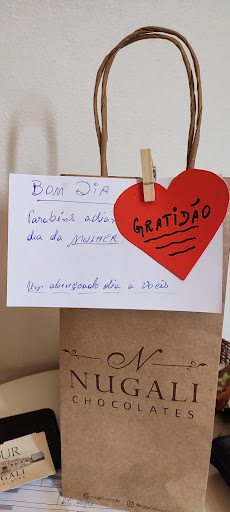 BOM DIA
Parabéns adian
dia da MULHER
GRATIDÃO
Um abençoado dia a vocês
N
NUGALI
CHOCOLATES
UR
GALI